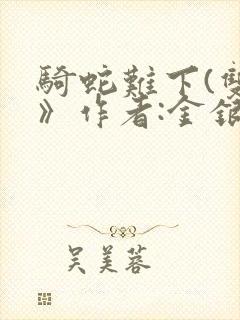 騎蛇難下(雙
》作者:金銀
吳美蓉